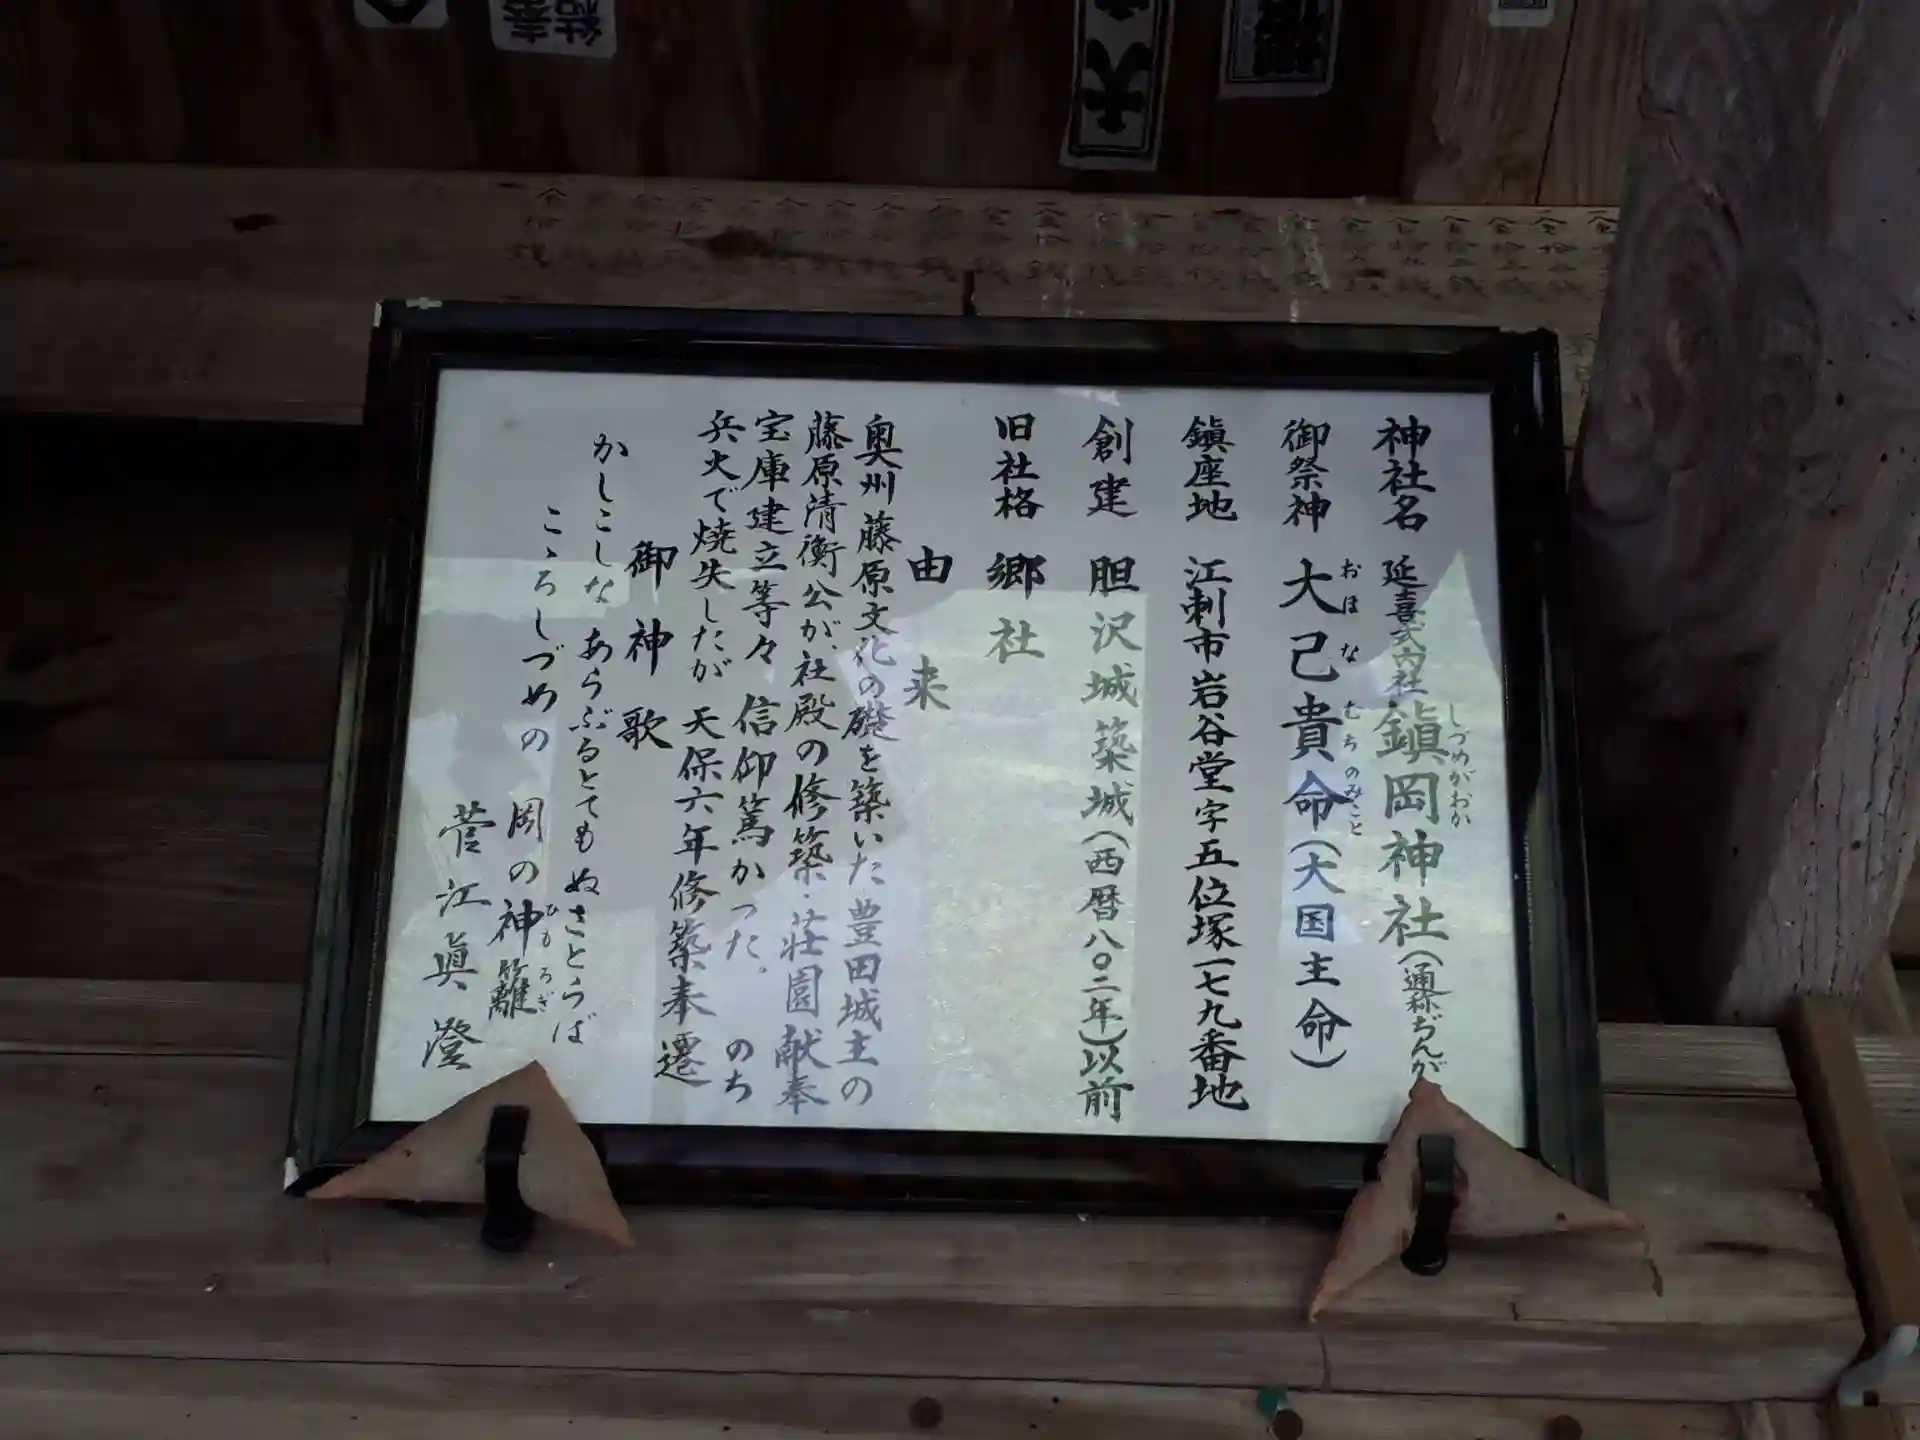 神社名 延喜式内社・鎭岡神社(通称ぢんが
しづめがおか
御祭神 大己貴命(大国主命)
おほなむちのみこと
鎭座地 江刺市岩谷堂字五位塚一七九番地
創建 胆沢城築城(西暦八〇二年)以前
旧社格 郷社
由来
奥州藤原文化の礎を築いた豊田城主の
藤原清衡公が、社殿の修築・荘園献奉
宝庫建立等々 信仰篤かった。 のち
兵火で焼失したが 天保六年修築奉遷
御神歌
かしこしな あらぶるとても ぬさとらば
こゝろしづめの 岡の神籬
ひもろぎ
菅江眞澄